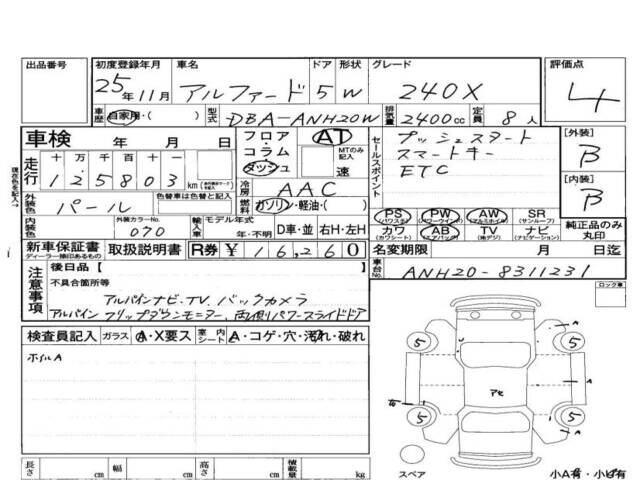 出品番号
初度登録年月
25年11月
車名
アルファード
ドア
5
形状
W
グレード
240X
評価点
4
車歴
自家用・( )
型式
DBA-ANH20W
排気量
2400cc
定員
8人
車検 年 月 日
フロア・コラム・ダッシュ
AT
MTのみ記入
速
セールスポイント
プッシュスタート
スマートキー
ETC
[外装]
B
[内装]
B
現在所を記入→
走行
十万 万 千 百 十 一
125803 km
冷房
AAC
燃料
ガソリン・軽油・( )
外装色
パール
色替車は色替と記入
内装色
外装カラーNo.
070
輸入車
モデル年式
年・不明
D車・並
右H・左H
PS (パワステ)
PW (パワーウインド)
AW (アルミホイル)
SR (サンルーフ)
カワ (カワシート)
AB (エアバッグ)
TV (地デジ)
ナビ (ナビゲーション)
純正品のみ丸印
新車保証書
ディーラー捺印あるもの
取扱説明書
R券 ¥16,260
名変期限 月 日迄
車台No.
ANH20-8311231
注意事項
後日品【
不具合箇所等
アルパインナビ・TV、バックカメラ
アルパインフリップダウンモニター、両側パワースライドドア
ロック車
検査員記入
ガラス
A・X要ス
室内シート
A・コゲ・穴・汚れ・破れ
ホイルA
5
5
A
アセ
A
5
5
A
スペア
小A有・小凹有
長さ cm
幅 cm
高さ cm
積載量 kg